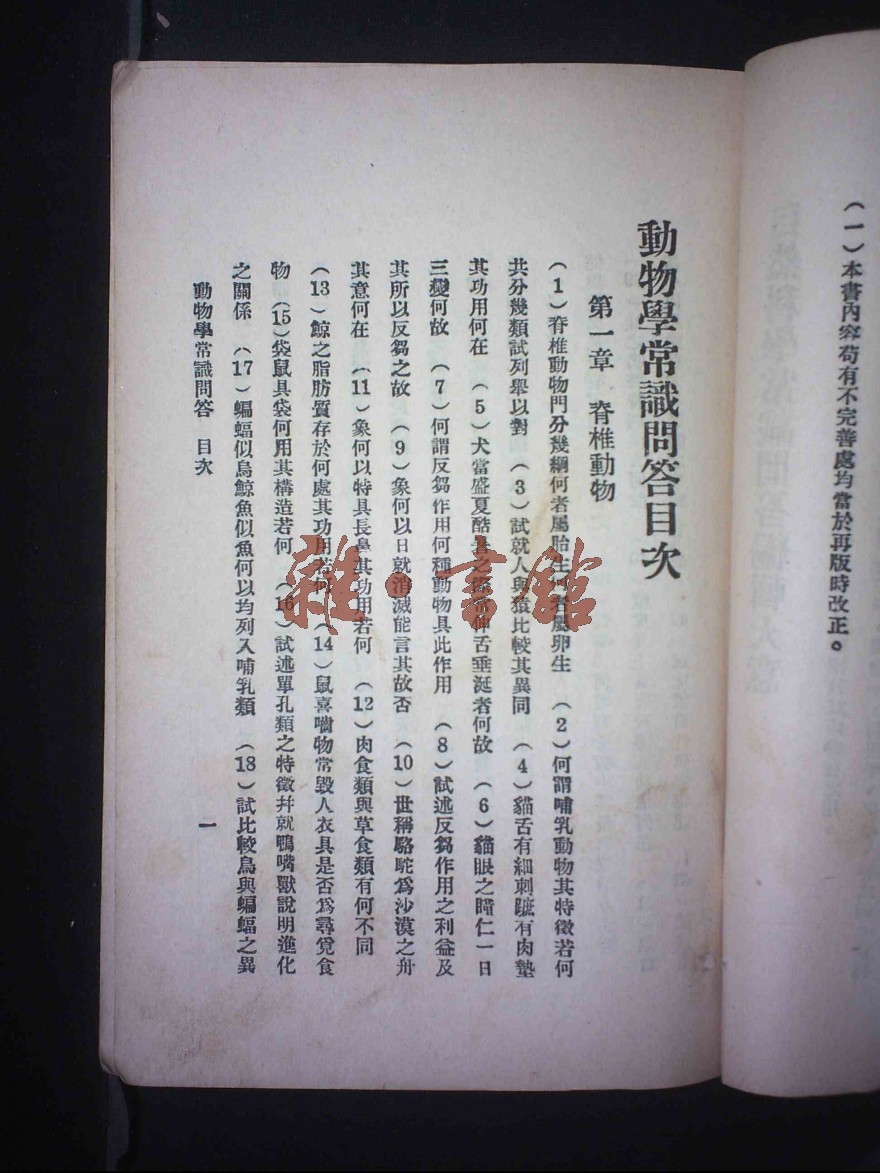 (一)本書內容苟有不完善處均當於再版時改正。
動物學常識問答目次
第一章 脊椎動物
(1)脊椎動物門分幾綱何者屬胎生何者屬卵生 (2)何謂哺乳動物其特徵若何
共分幾類試列舉以對 (3)試就人與猿比較其異同 (4)貓舌有細刺蹠有肉墊
其功用何在 (5)犬當盛夏酷暑之際常伸舌垂涎者何故 (6)貓眼之瞳仁一日
三變何故 (7)何謂反芻作用何種動物具此作用 (8)試述反芻作用之利益及
其所以反芻之故 (9)象何以日就消滅能言其故否 (10)世稱駱駝爲沙漠之舟
其意何在 (11)象何以特具長鼻其功用若何 (12)肉食類與草食類有何不同
(13)鯨之脂肪質存於何處其功用若何 (14)鼠喜嚙物常毀人衣具是否爲尋覓食
物 (15)袋鼠具袋何用其構造若何 (16)試述單孔類之特徵幷就鴨嘴獸說明進化
之關係 (17)蝙蝠似鳥鯨魚似魚何以均列入哺乳類 (18)試比較鳥與蝙蝠之異
動物學常識問答 目次
一
雜·書館